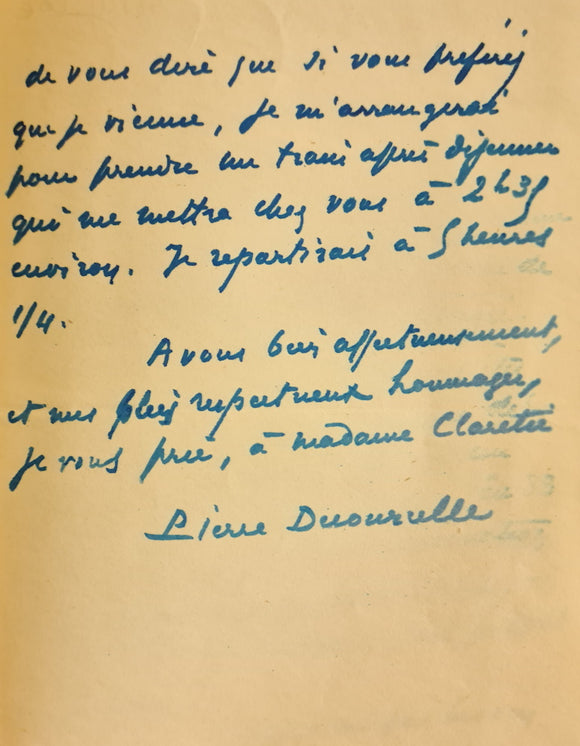 de vous dire que si vous préférez
que je vienne, je m'arrangerai
pour prendre un train après déjeuner
qui me mettra chez vous à 2h35
environ. Je repartirais à 5 heures
1/4.
A vous bien affectueusement,
et mes plus respectueux hommages,
je vous prie, à madame Claretie
Pierre Decourcelle